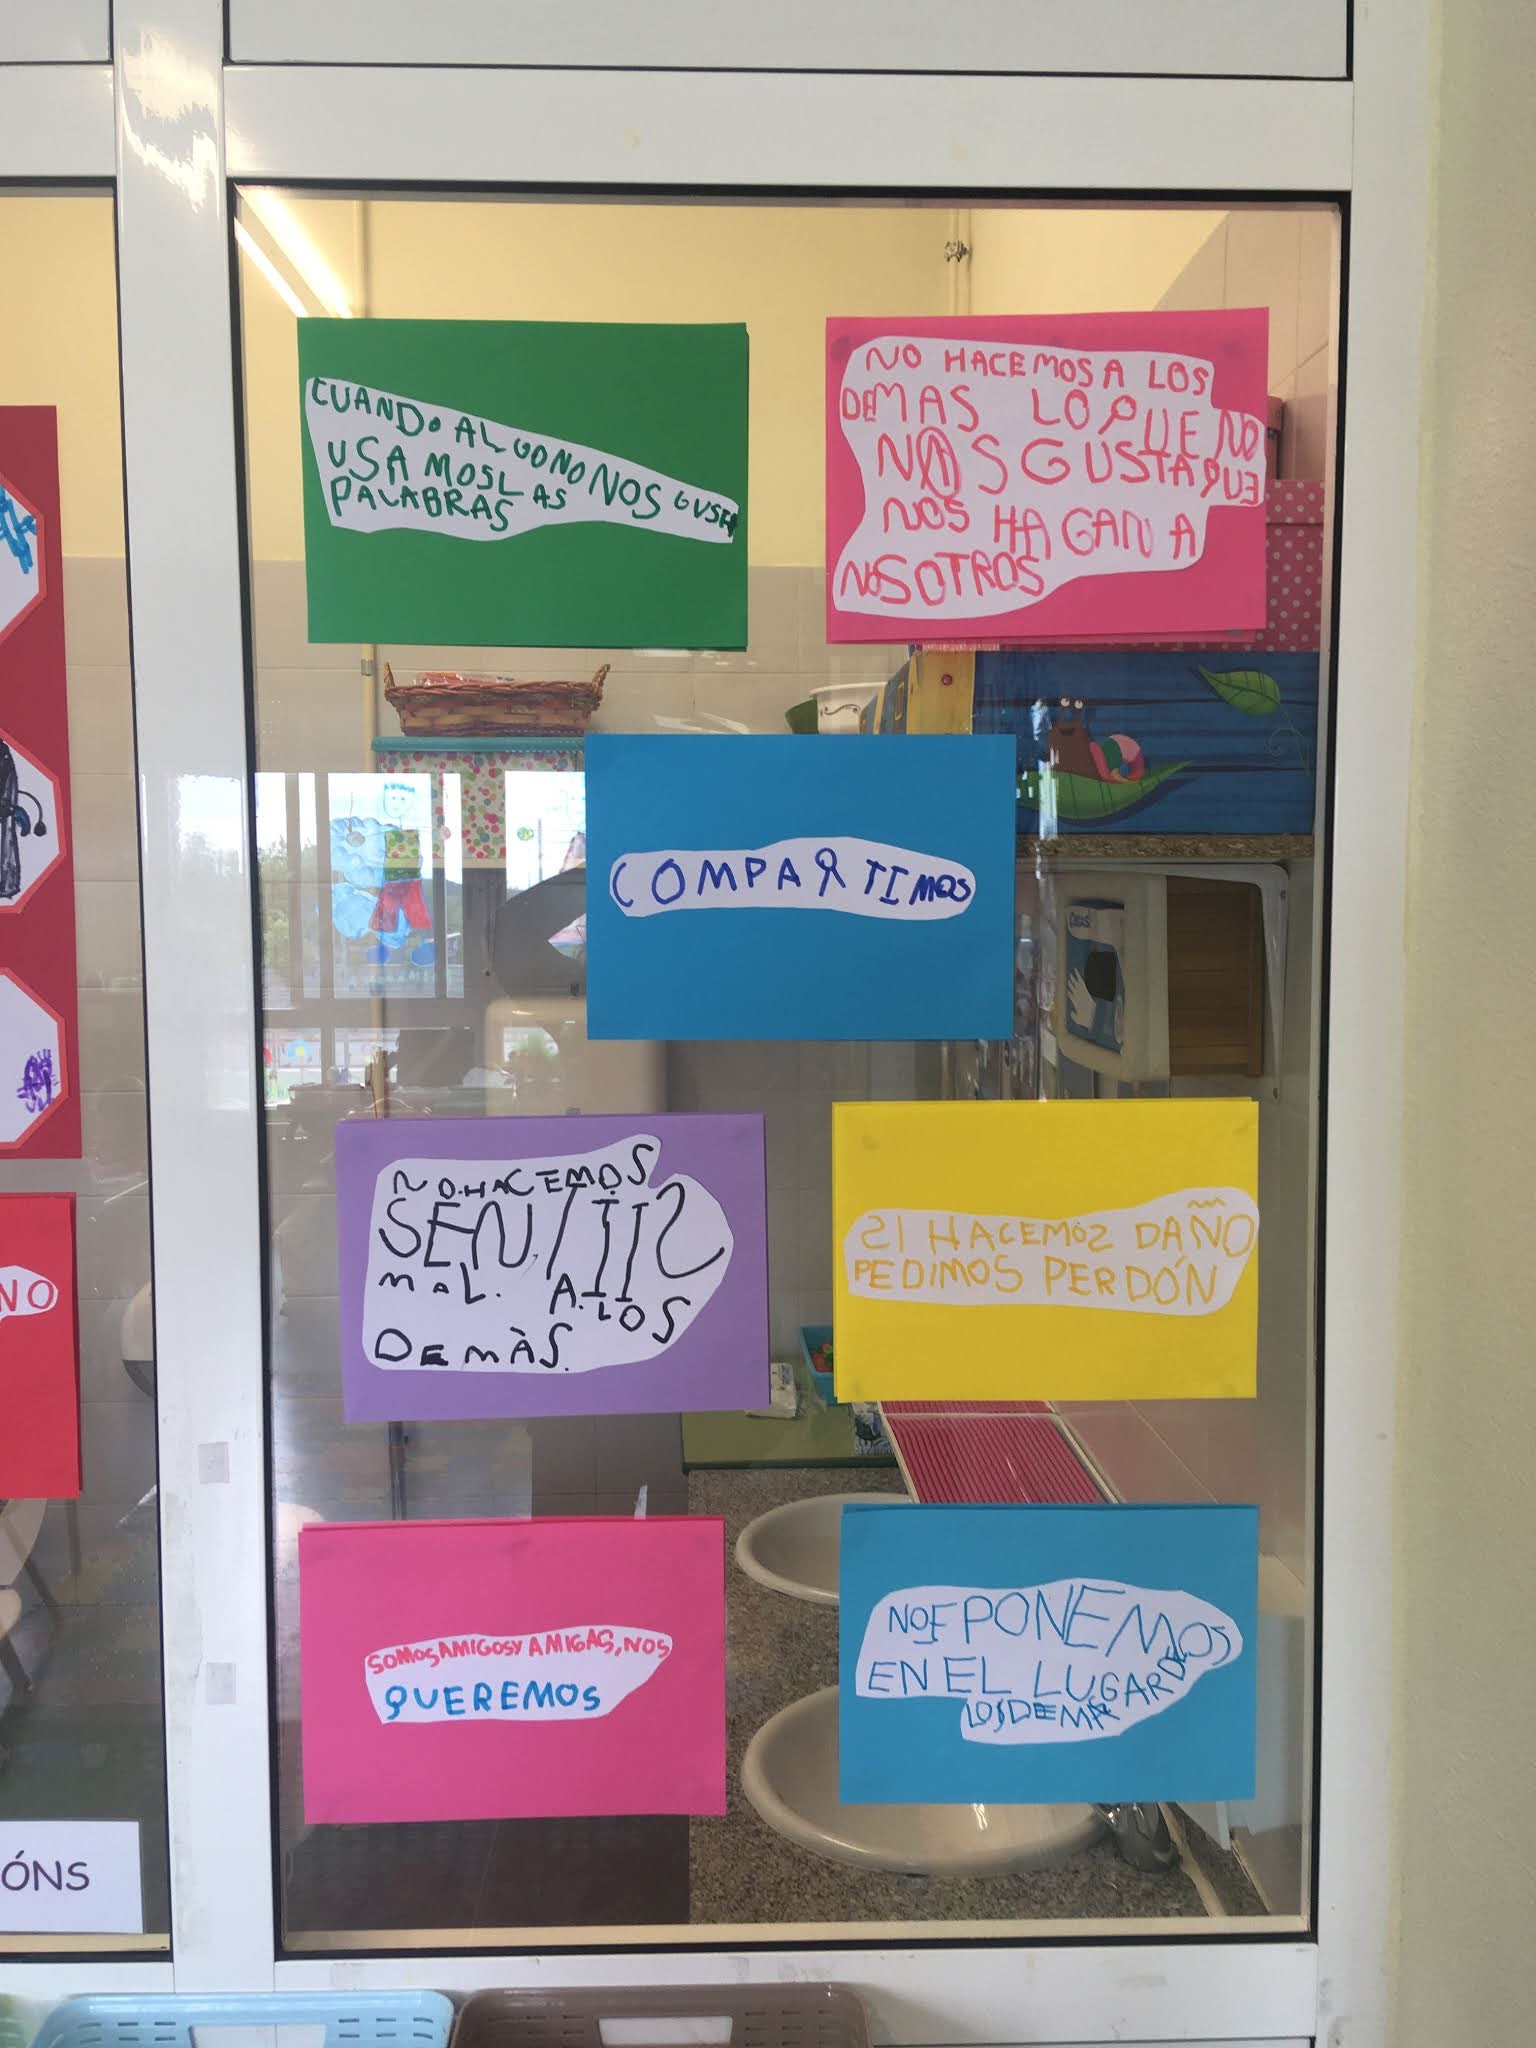 CUANDO ALGO NO NOS GUSTA
USAMOS LAS
PALABRAS
NO HACEMOS A LOS
DEMAS LO QUE NO
NOS GUSTA QUE
NOS HAGAN A
NOSOTROS
COMPARTIMOS
NO.HACEMOS
SENTIIS
MAL. A.LOS
DEMÀS.
SI HACEMOS DAÑO
PEDIMOS PERDÓN
NO
SOMOS AMIGOS Y AMIGAS, NOS
QUEREMOS
NOE PONEMOS
EN EL LUGAR DE
LOS DEMAS
ÓNS